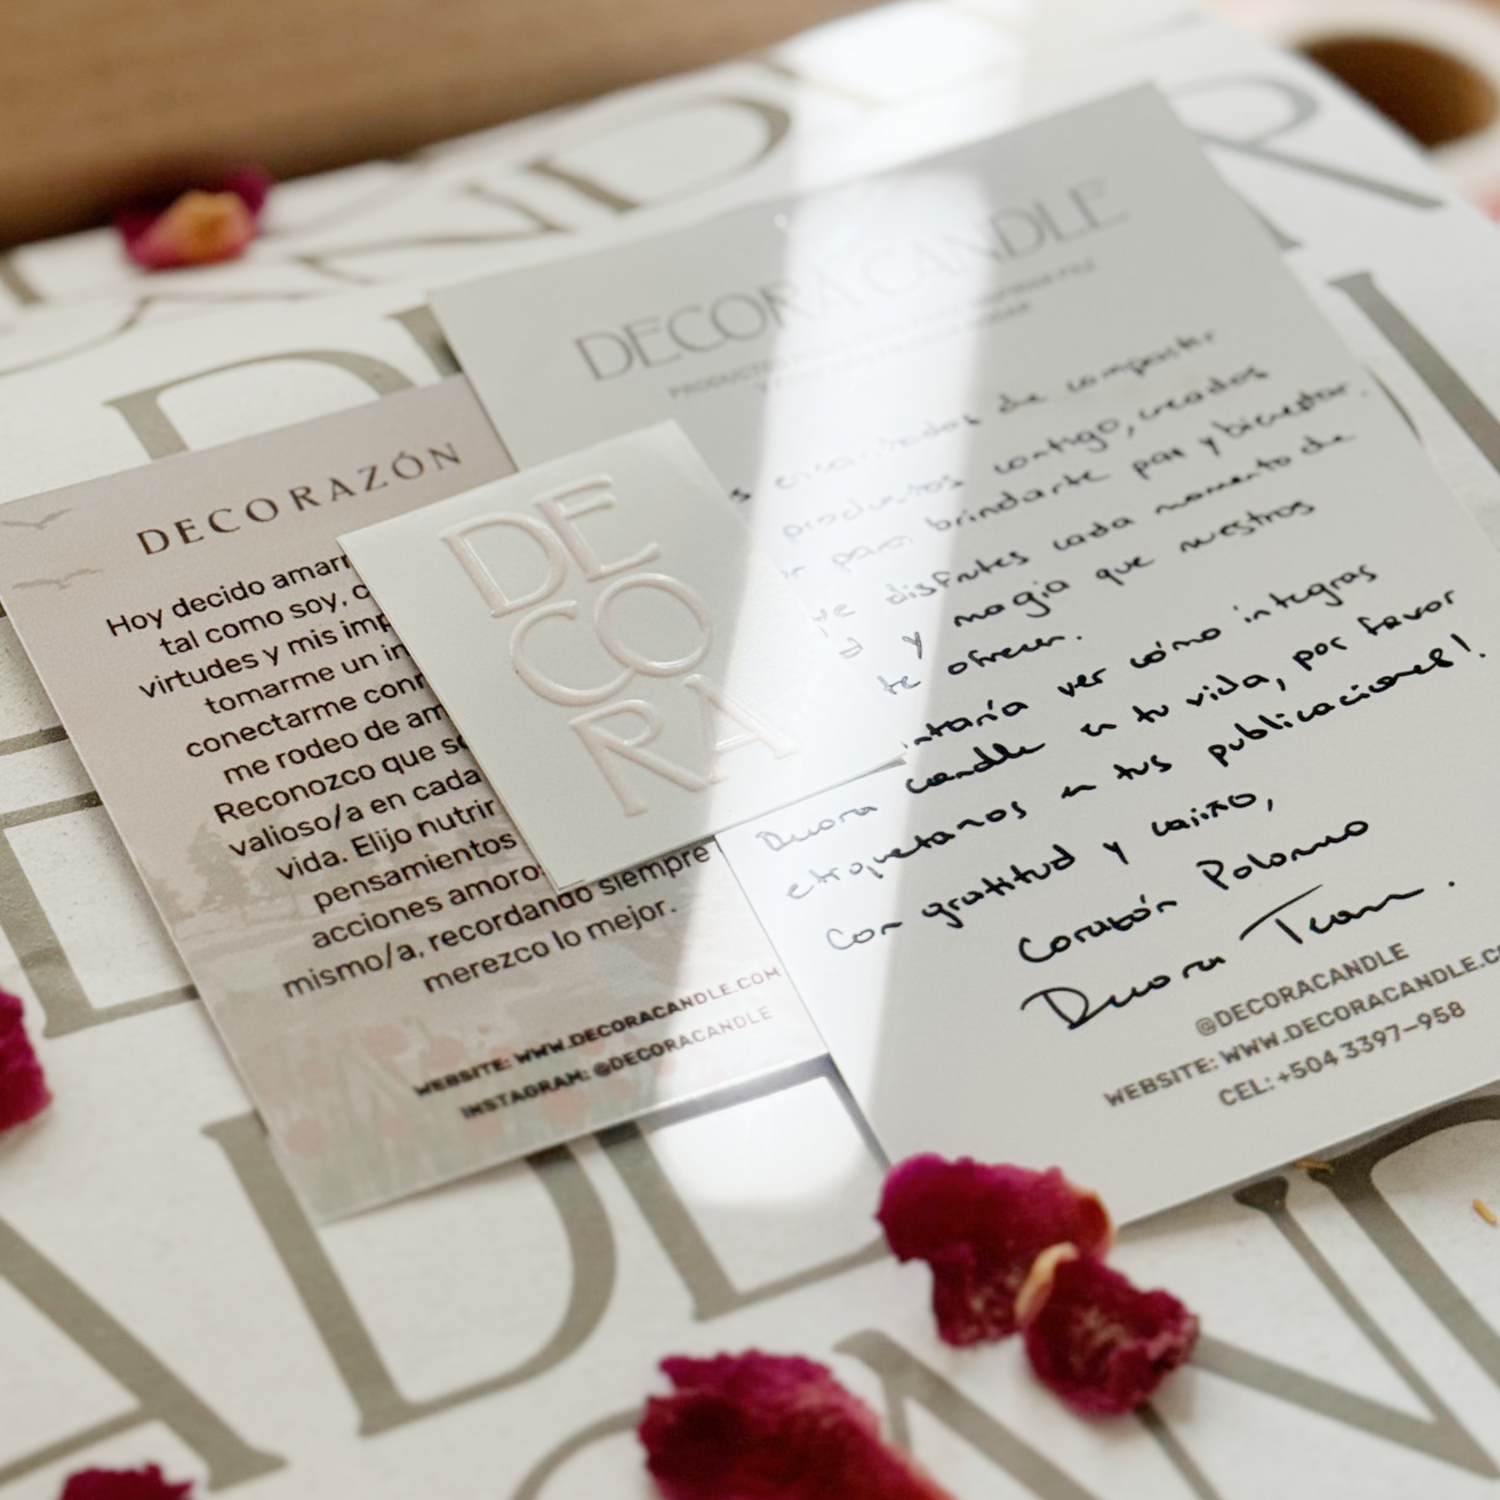 DECORAZÓN
Hoy decido amarm
tal como soy, c
virtudes y mis imp
tomarme un in
conectarme conm
me rodeo de am
Reconozco que so
valioso/a en cada
vida. Elijo nutrir
pensamientos
acciones amoro
mismo/a, recordando siempre
merezco lo mejor.
WEBSITE: WWW.DECORACANDLE.COM
INSTAGRAM: @DECORACANDLE
DE
CO
RA
DECORA CANDLE
PRODUCTOS
HOGAR
s encantados de compartir
productos contigo, creados
r para brindarte paz y bienestar.
ue disfrutes cada momento de
d y magia que nuestros
te ofrecen.
ntaría ver cómo integras
Decora candle en tu vida, por favor
etiquetanos en tus publicaciones!.
Con gratitud y cariño,
Corazón Palermo
Decora Team.
@DECORACANDLE
WEBSITE: WWW.DECORACANDLE.CO
CEL: +504 3397-958